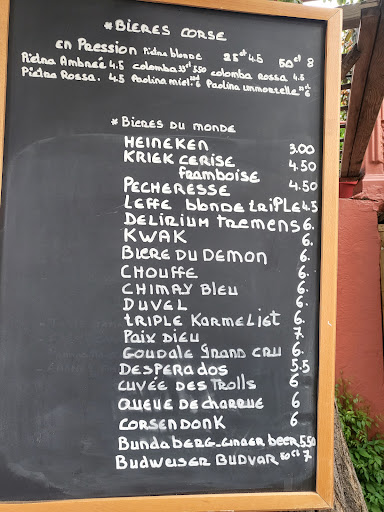 *BIÈRES CORSE
en Pression Pietra blonde 25cl 4.5 50cl 8
Pietra Ambrée 4.5 colomba 33cl 5.50 colomba Rossa 4.5
Pietra Rossa. 4.5 Paolina miel: 6 Paolina immortelle 6
*BIERES DU MONDE
HEINEKEN 3.00
KRIEK CERISE 4.50
framboise
PECHERESSE 4.50
LEFFE blonde tRiPLE 4.5
DELIRIUM TREMENS 6.
KWAK 6.
BIERE DU DEMON 6.
CHOUFFE 6.
CHIMAY BLEU 6.
DUVEL 6.
tRIPLE KARMELIET 6.
PAIX DIEU 7.
GOUDALE GRAND CRU 6.
DESPERADOS 5.5
CUVÉE DES TROLLS 6
QUEUE DE CHARRUE 6
CORSENDONK 6
BUNDABERG-GINGER BEER 5.50
BUDWEISER BUDVAR 50cl 7